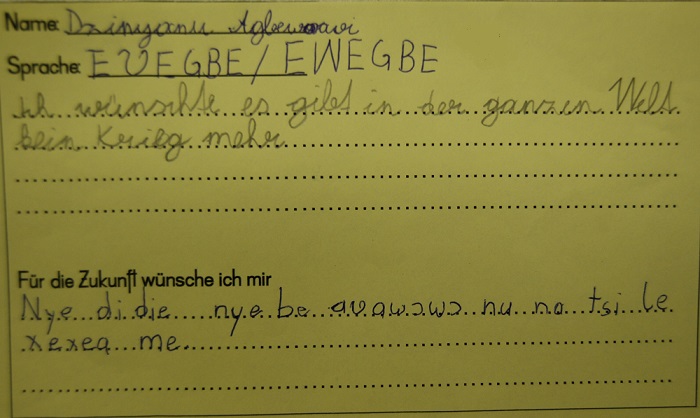 Name: Dzinyanu Agbewavi
Sprache: EƲEGBE / EWEGBE
Ich wünschte es gibt in der ganzen Welt
kein Krieg mehr
Für die Zukunft wünsche ich mir
Nye di die nye be aʋawɔwɔ nu na tsi le
xexea me